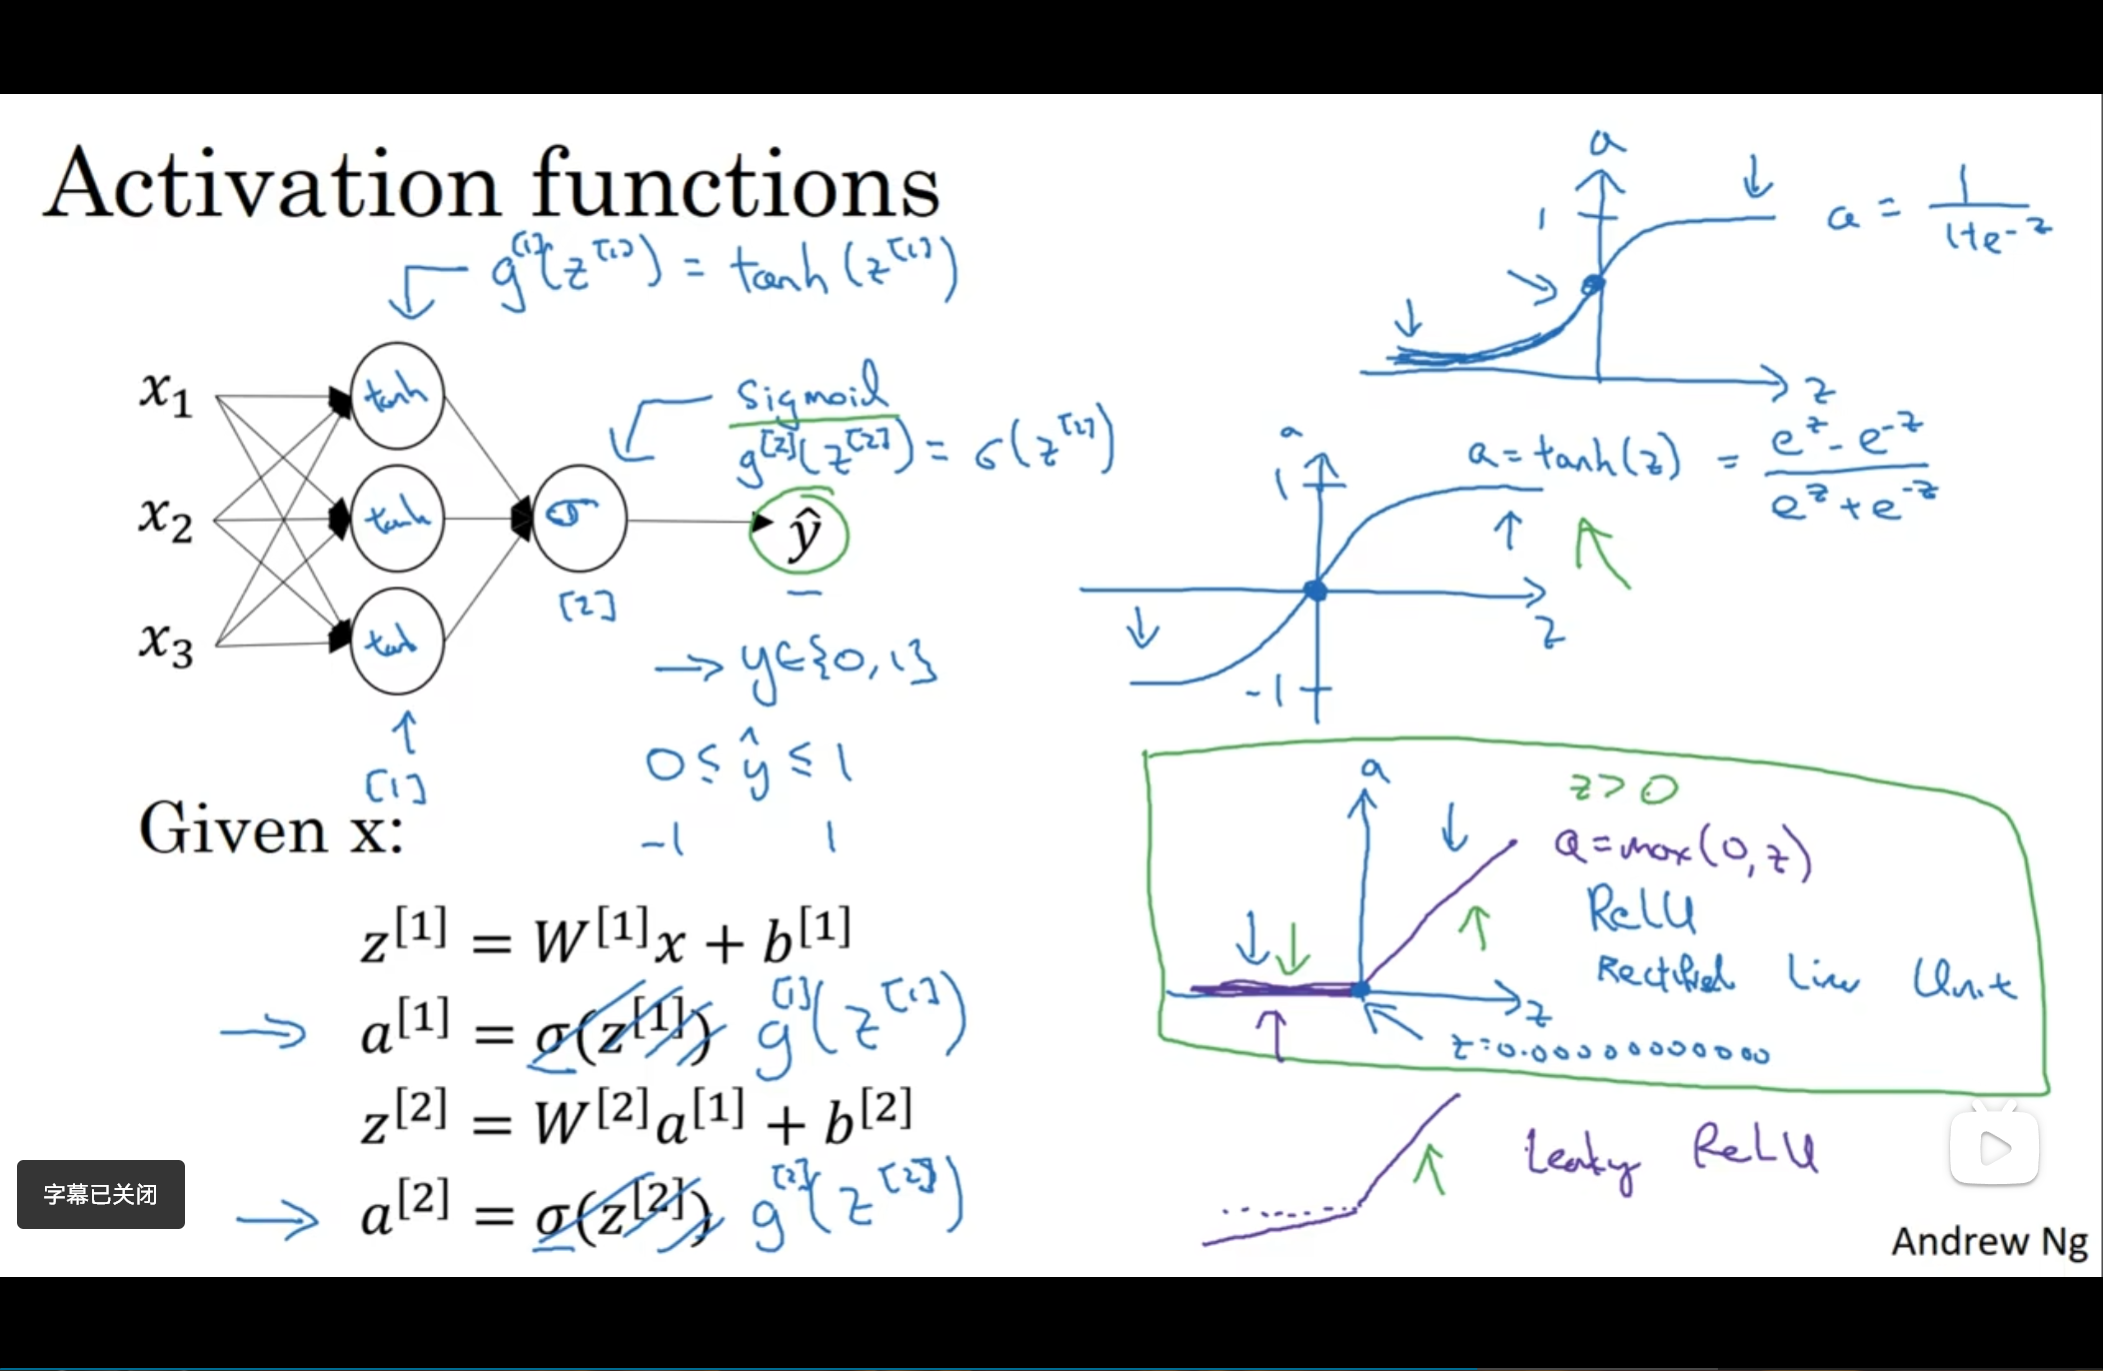 Activation functions
g^[1](z^[1]) = tanh(z^[1])
x₁
x₂
x₃
tanh
tanh
tanh
[1]
sigmoid
g^[2](z^[2]) = σ(z^[2])
σ
[2]
ŷ
→ y∈{0,1}
0 ≤ ŷ ≤ 1
-1 1
Given x:
z^[1] = W^[1]x + b^[1]
⇒ a^[1] = σ(z^[1]) g^[1](z^[1])
z^[2] = W^[2]a^[1] + b^[2]
⇒ a^[2] = σ(z^[2]) g^[2](z^[2])
a
1
a = 1/(1+e^-z)
z
a
1
a = tanh(z) = (e^z - e^-z)/(e^z + e^-z)
z
-1
a
z > 0
a = max(0,z)
ReLU
Rectified Linear Unit
z
z=0.00000000000
Leaky ReLU
字幕已关闭
Andrew Ng